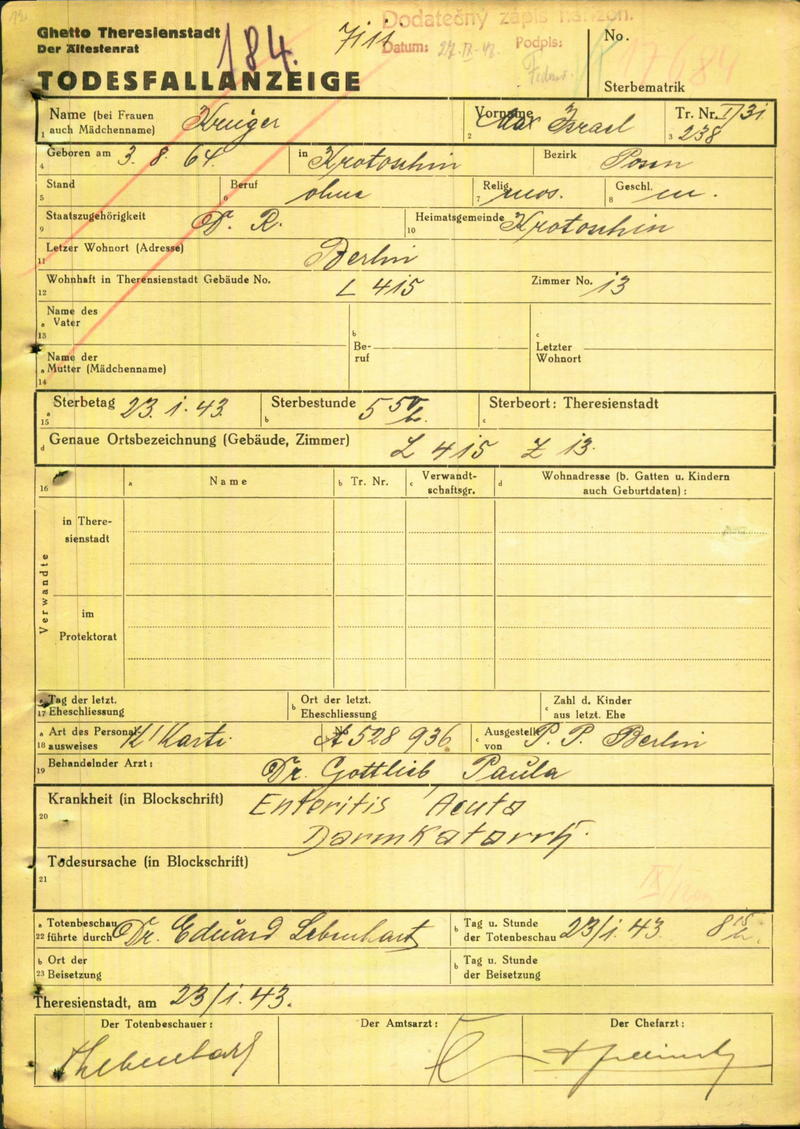 Ghetto Theresienstadt
Der Ältestenrat
184.
Dodatečný zápis
Datum: Podpis:
No.
17684
TODESFALLANZEIGE
Sterbematrik
Name (bei Frauen auch Mädchenname) Krüger
Vorname Max Israel
Tr. Nr. I/31 238
1 2 3
4 Geboren am 3. 8. 64. in Krotoschin Bezirk Posen
5 Stand 6 Beruf ohne 7 Relig. mos. 8 Geschl. m.
9 Staatszugehörigkeit D. R. 10 Heimatsgemeinde Krotoschin
11 Letzer Wohnort (Adresse) Berlin
12 Wohnhaft in Theresienstadt Gebäude No. L 415 Zimmer No. 13
a 13 Name des Vater
b Beruf
c Letzter Wohnort
a 14 Name der Mutter (Mädchenname)
a 15 Sterbetag 23. 1. 43. b Sterbestunde 5 50 h. c Sterbeort: Theresienstadt
d Genaue Ortsbezeichnung (Gebäude, Zimmer) L 415 Z 13.
16 a Name b Tr. Nr. c Verwandt-schaftsgr. d Wohnadresse (b. Gatten u. Kindern auch Geburtdaten):
Verwandte
in There-
sienstadt
im
Protektorat
a 17 Tag der letzt. Eheschliessung b Ort der letzt. Eheschliessung c Zahl d. Kinder aus letzt. Ehe
a 18 Art des Personal-ausweises K'Karte b No A 528 936 c Ausgestellt von P. P. Berlin
19 Behandelnder Arzt: Dr. Gottlieb Paula
20 Krankheit (in Blockschrift) Enteritis Acuta
Darmkatarrh.
21 Todesursache (in Blockschrift)
a 22 Totenbeschau führte durch Dr. Eduard Lebenhart b Tag u. Stunde der Totenbeschau 23/1. 43 8 15 h.
b 23 Ort der Beisetzung b Tag u. Stunde der Beisetzung
Theresienstadt, am 23/1. 43.
Der Totenbeschauer: Der Amtsarzt: Der Chefarzt:
Lebenhart